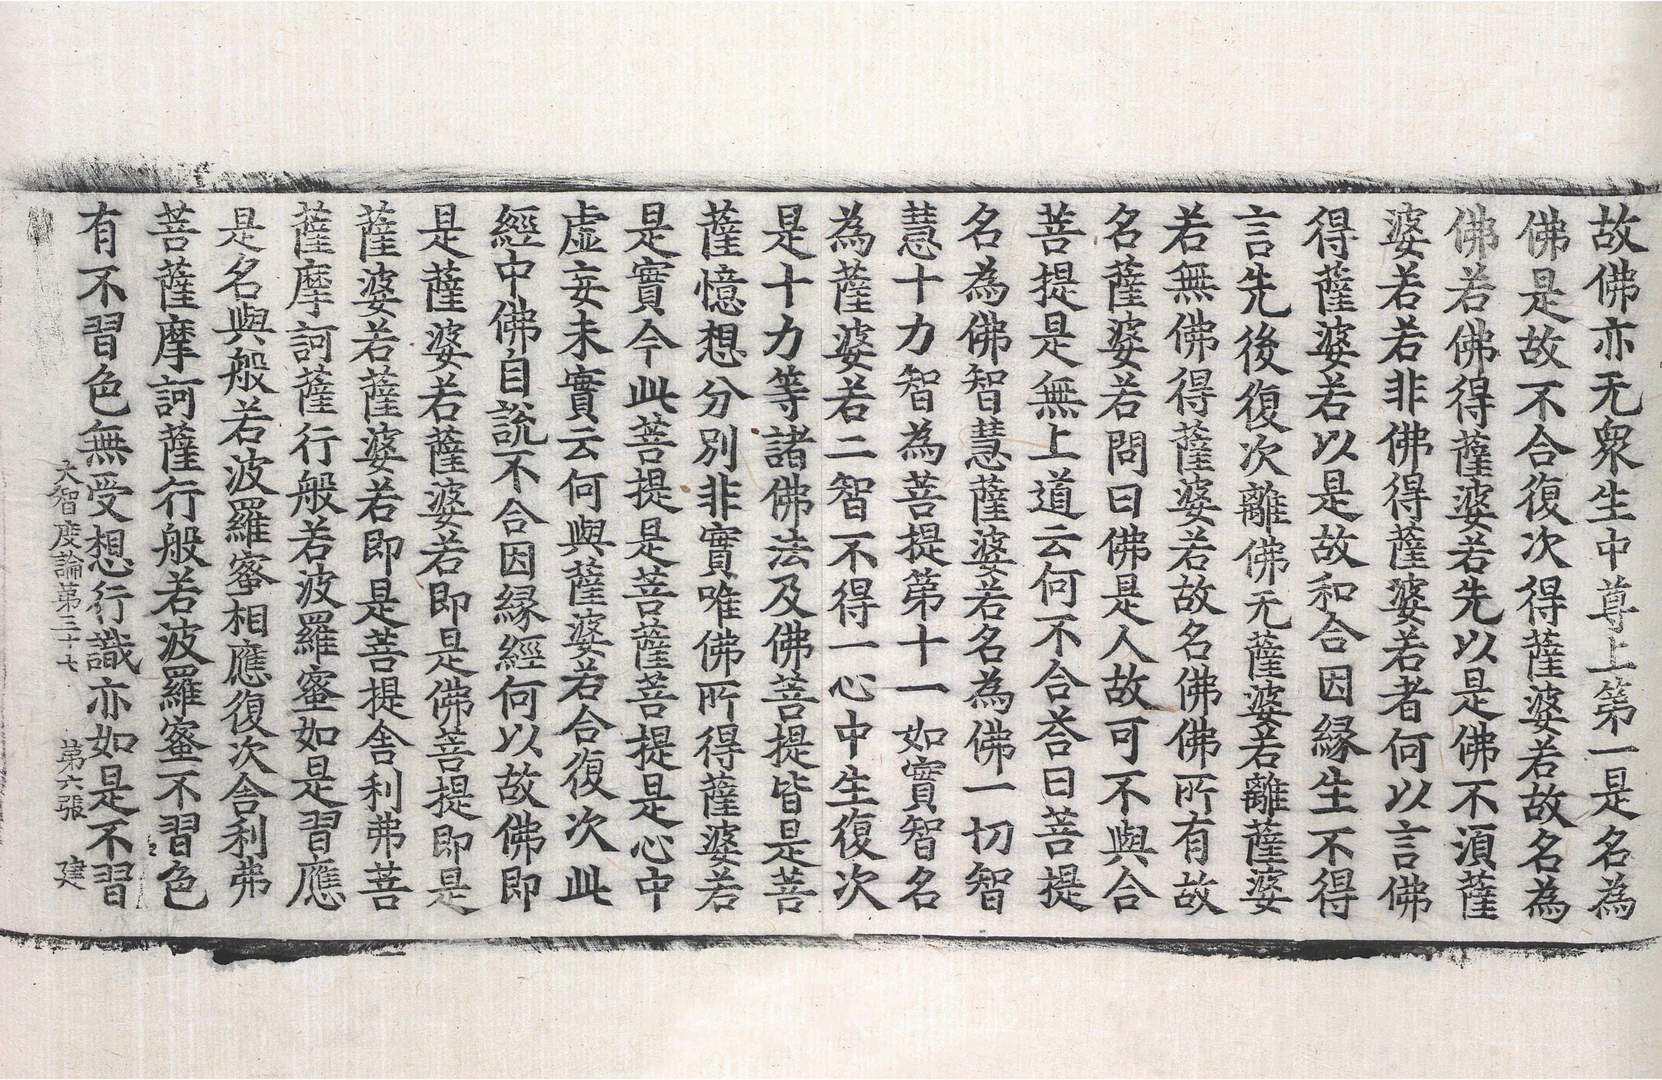 故佛亦无衆生中尊上第一是名為
佛是故不合復次得薩婆若故名為
佛若佛得薩婆若先以是佛不湏薩
婆若若非佛得薩婆若者何以言佛
得薩婆若以是故和合因縁生不得
言先後復次離佛无薩婆若離薩婆
若無佛得薩婆若故名佛佛所有故
名薩婆若問曰佛是人故可不與合
菩提是無上道云何不合荅曰菩提
名為佛智慧薩婆若名為佛一切智
慧十力智為菩提第十一如實智名
為薩婆若二智不得一心中生復次
是十力等諸佛法及佛菩提皆是菩
薩憶想分別非實唯佛所得薩婆若
是實今此菩提是菩薩菩提是心中
虛妄未實云何與薩婆若合復次此
經中佛自說不合因縁經何以故佛即
是薩婆若薩婆若即是佛菩提即是
薩婆若薩婆若即是菩提舍利弗菩
薩摩訶薩行般若波羅蜜如是習應
是名與般若波羅蜜相應復次舍利弗
菩薩摩訶薩行般若波羅蜜不習色
有不習色無受想行識亦如是不習
大智度論第三十七 第六張 建